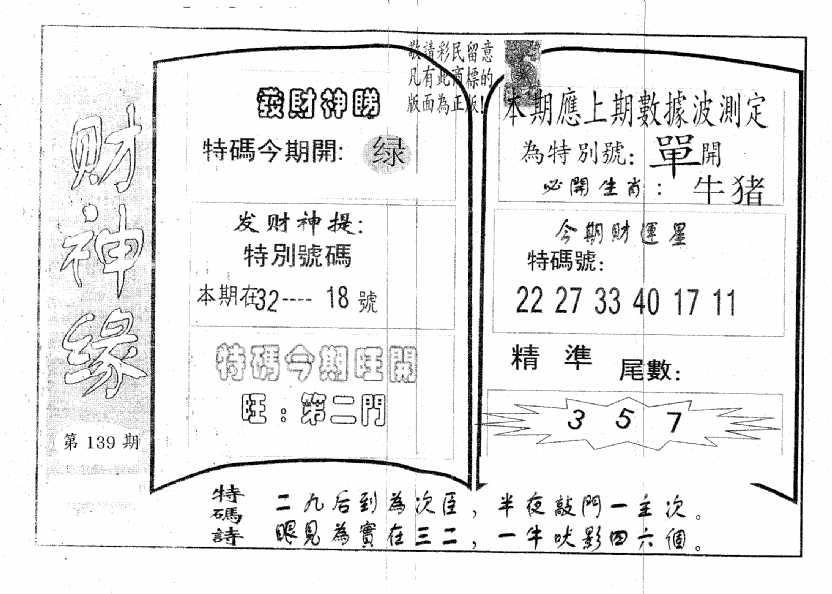 敬請彩民留意
凡有此商標的
版面為正版!
财神缘
第139期
發財神賜
特碼今期開: 绿
发财神提:
特別號碼
本期在32---- 18號
特碼今期旺開
旺: 第二門
本期應上期數據波測定
為特別號: 單開
必開生肖: 牛猪
今期財運星
特碼號:
22 27 33 40 17 11
精 準 尾數:
3 5 7
特碼詩
二九后到為次臣, 半夜敲門一主次。
眼見為實在三二, 一牛吠影四六個。